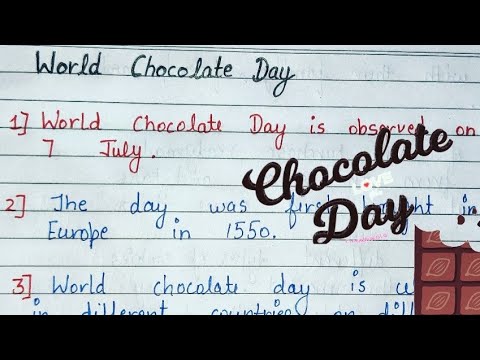 World Chocolate Day
1] World Chocolate Day is observed on
7 July.
2] The day was first in
Europe in 1550.
3] World chocolate day is
in different countries on
Chocolate
LOVE
Day